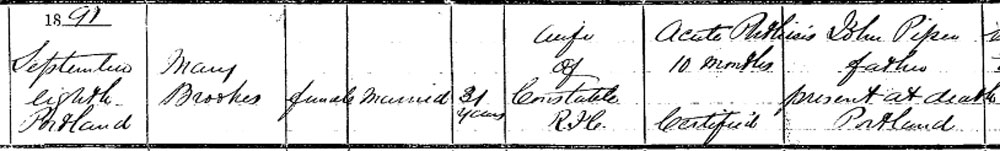 1891
September
eighth
Portland
Mary
Brookes
female
Married
31
years
Wife
of
Constable
R.I.C.
Acute Phthisis
10 months
Certified
John Piper
father
present at death
Portland